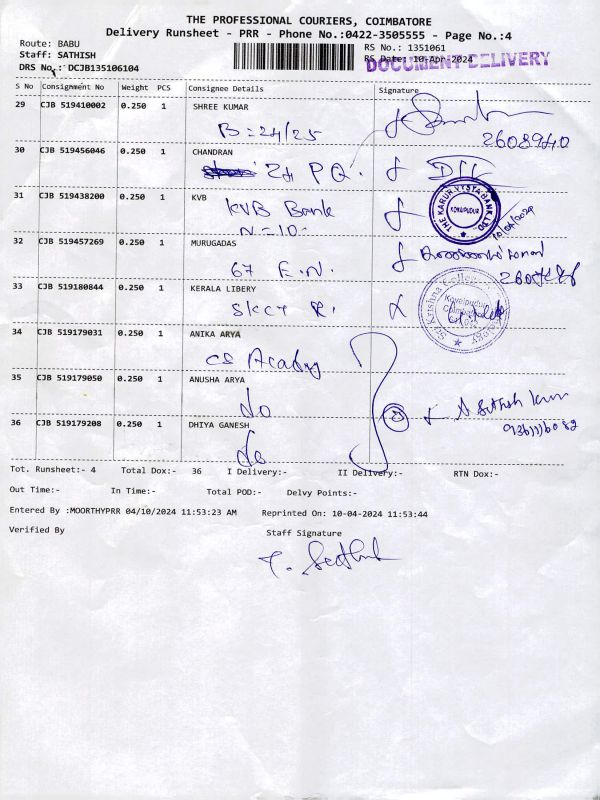 THE PROFESSIONAL COURIERS, COIMBATORE
Delivery Runsheet - PRR - Phone No.:0422-3505555 - Page No.:4
Route: BABU
RS No.: 1351061
Staff: SATHISH
RS Date: 10-Apr-2024
DOCUMENT DELIVERY
DRS No.: DCJB135106104
S No Consignment No Weight PCS Consignee Details Signature
29 CJB 519410002 0.250 1 SHREE KUMAR
B=24/25
2608940
30 CJB 519456046 0.250 1 CHANDRAN
24 PQ.
31 CJB 519438200 0.250 1 KVB
KVB Bank
N=10-
THE KARUR VYSYA BANK LTD
KOVAIPUDUR
32 CJB 519457269 0.250 1 MURUGADAS
67 E.N.
33 CJB 519180844 0.250 1 KERALA LIBERY
SKCT R.
Sri Krishna College
Kovaipudur
34 CJB 519179031 0.250 1 ANIKA ARYA
CS Academy
35 CJB 519179050 0.250 1 ANUSHA ARYA
do
36 CJB 519179208 0.250 1 DHIYA GANESH
do
Tot. Runsheet:- 4 Total Dox:- 36 I Delivery:- II Delivery:- RTN Dox:-
Out Time:- In Time:- Total POD:- Delvy Points:-
Entered By :MOORTHYPRR 04/10/2024 11:53:23 AM Reprinted On: 10-04-2024 11:53:44
Verified By Staff Signature